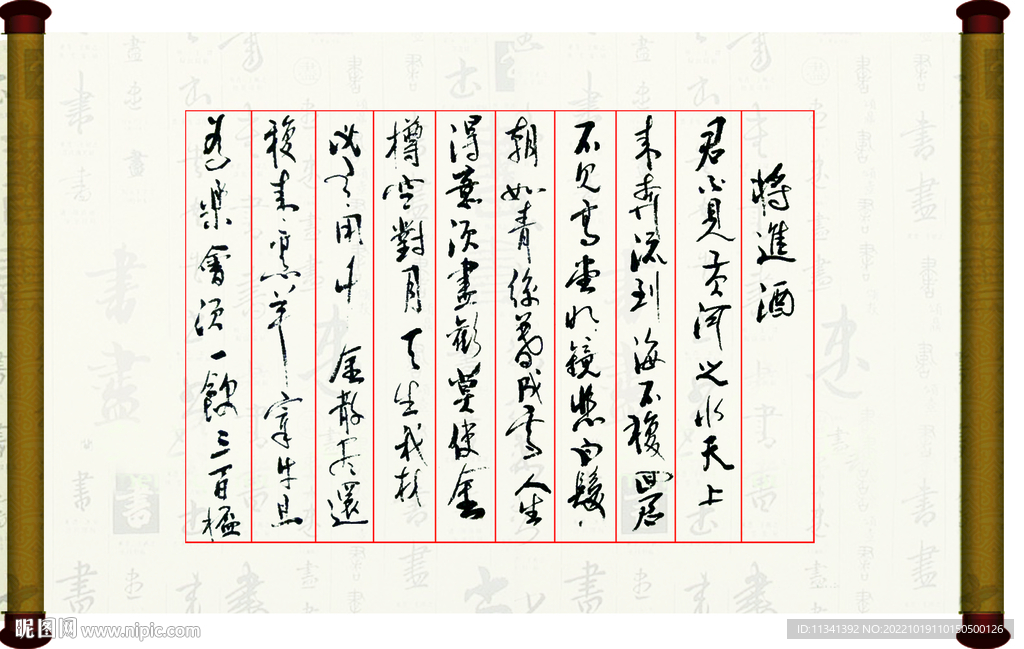 將進酒
君不見黃河之水天上
来奔流到海不複回君
不見高堂明鏡悲白髮
朝如青絲暮成雪人生
得意須盡歡莫使金
樽空對月天生我材
必有用千金散盡還
複来烹羊宰牛且
為樂會須一飲三百杯
昵图网 www.nipic.com
ID:11341392 NO:20221019110150500126